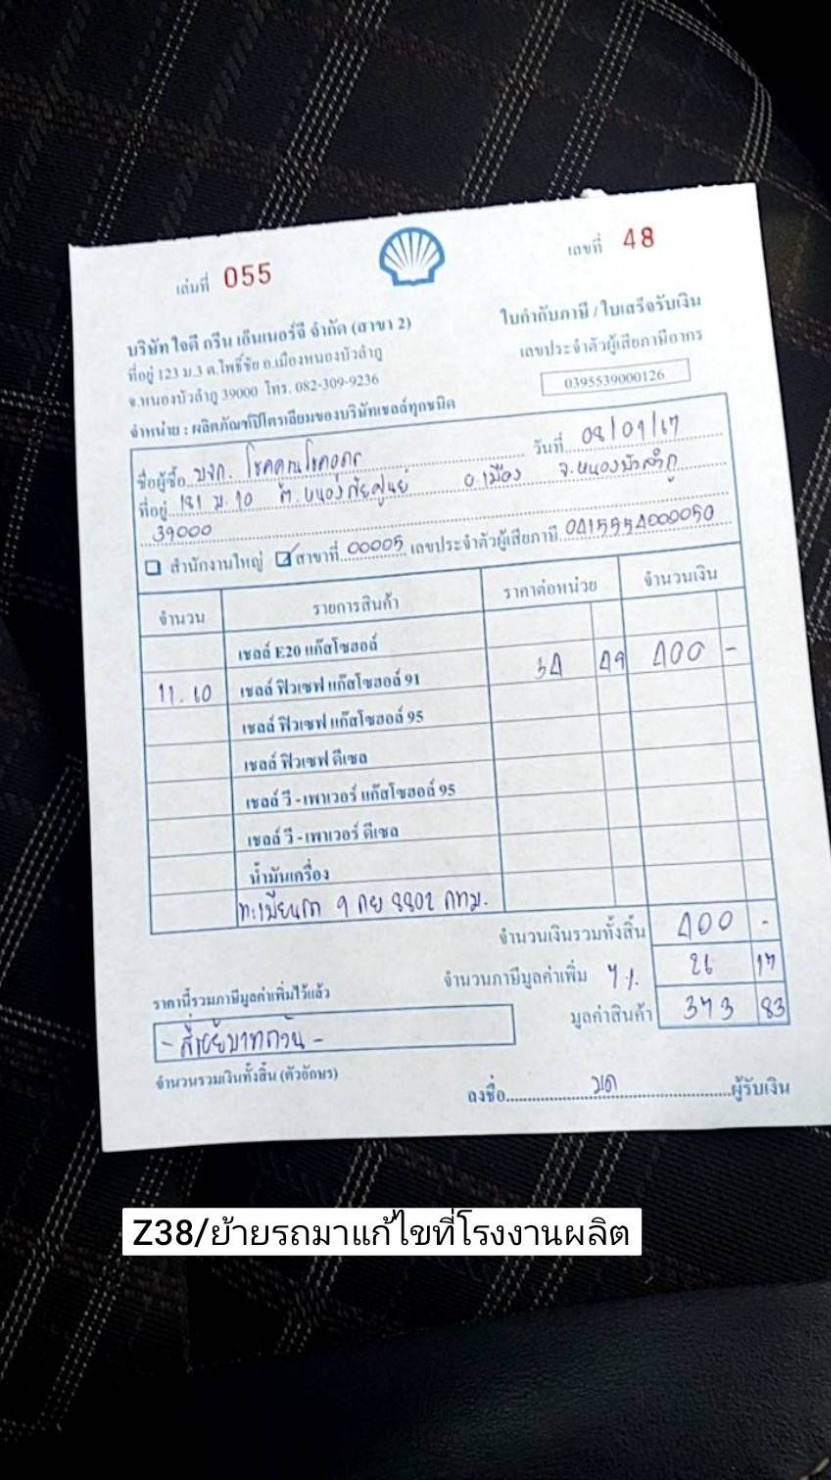 เล่มที่ 055
เลขที่ 48
บริษัท ไอดี กรีน เอ็นเนอร์จี จำกัด (สาขา 2)
ที่อยู่ 123 ม.3 ต.โพธิ์ชัย อ.เมืองหนองบัวลำภู
จ.หนองบัวลำภู 39000 โทร. 082-309-9236
จำหน่าย : ผลิตภัณฑ์ปิโตรเลียมของบริษัทเชลล์ทุกชนิด
ใบกำกับภาษี / ใบเสร็จรับเงิน
เลขประจำตัวผู้เสียภาษีอากร
0395539000126
ชื่อผู้ซื้อ บจก. โชคคูณโชค วันที่ 08/01/67
ที่อยู่ 181 ม.10 ต.หนองภัยศูนย์ อ.เมือง จ.หนองบัวลำภู
39000
สำนักงานใหญ่ สาขาที่ 00005 เลขประจำตัวผู้เสียภาษี 0415554000050
จำนวน รายการสินค้า ราคาต่อหน่วย จำนวนเงิน
เชลล์ E20 แก๊สโซฮอล์
11.60 เชลล์ ฟิวเซฟ แก๊สโซฮอล์ 91 34 49 400 -
เชลล์ ฟิวเซฟ แก๊สโซฮอล์ 95
เชลล์ ฟิวเซฟ ดีเซล
เชลล์ วี - เพาเวอร์ แก๊สโซฮอล์ 95
เชลล์ วี - เพาเวอร์ ดีเซล
น้ำมันเครื่อง
ทะเบียนรถ 9 กย 8802 กทม.
จำนวนเงินรวมทั้งสิ้น 400 -
จำนวนภาษีมูลค่าเพิ่ม 7% 26 17
มูลค่าสินค้า 373 83
ราคานี้รวมภาษีมูลค่าเพิ่มไว้แล้ว
- สี่ร้อยบาทถ้วน -
จำนวนรวมเงินทั้งสิ้น (ตัวอักษร)
ลงชื่อ ผู้รับเงิน
Z38/ย้ายรถมาแก้ไขที่โรงงานผลิต